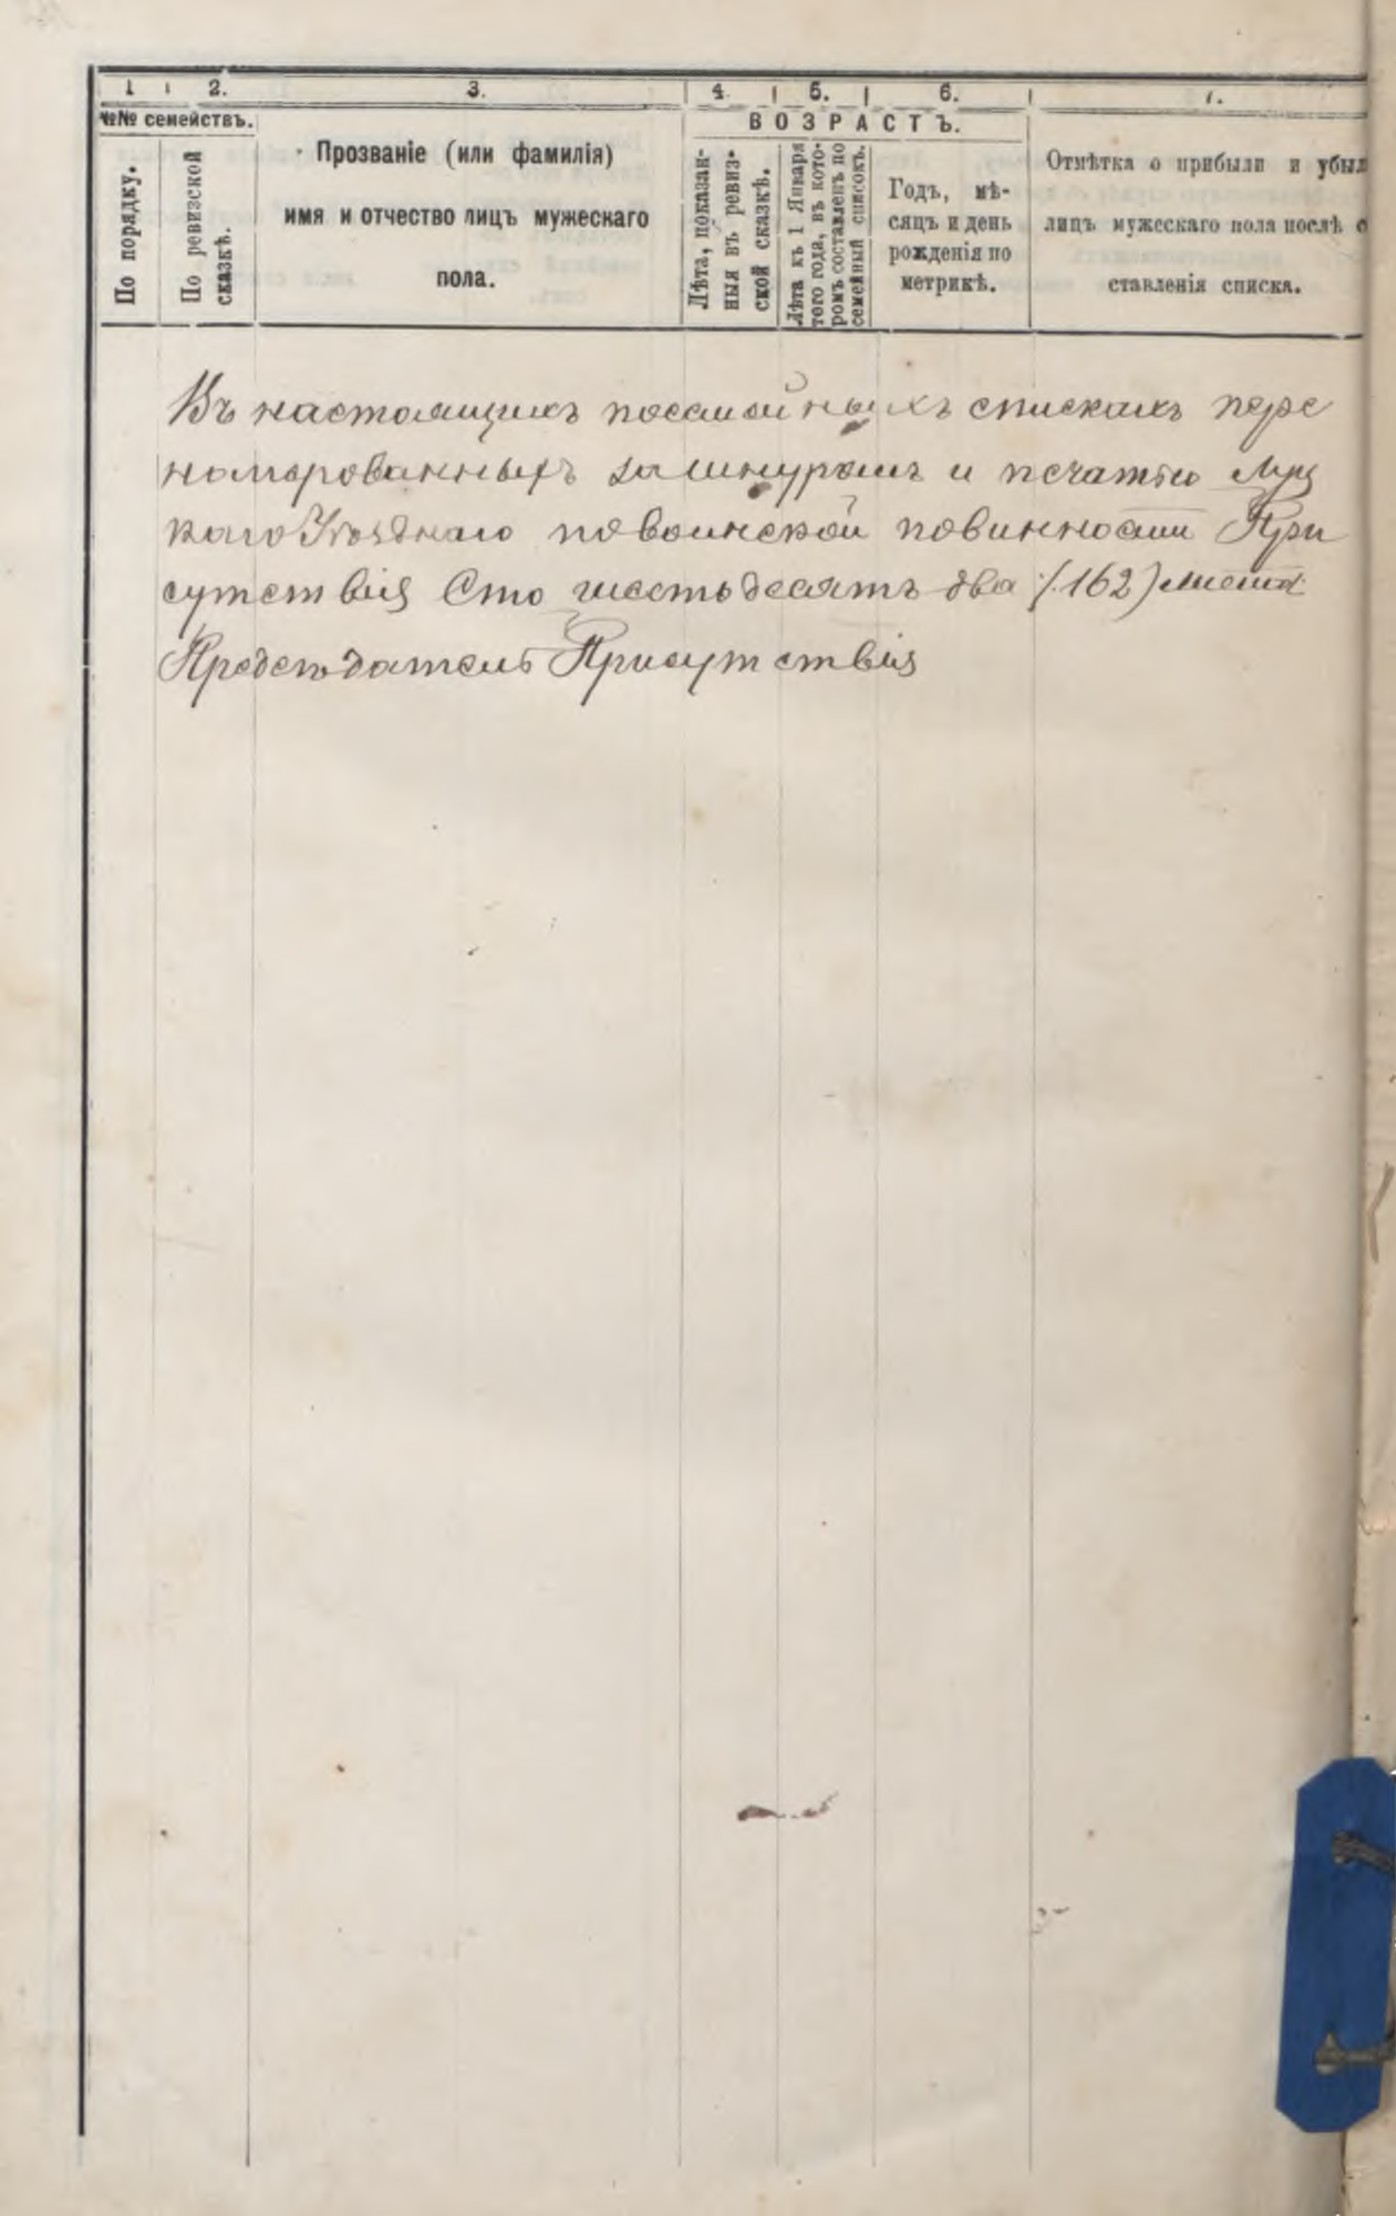 1 2. 3. 4. 5. 6. 7.
№№ семействъ.
По порядку.
По ревизской
сказкѣ.
Прозваніе (или фамилія)
имя и отчество лицъ мужескаго
пола.
ВОЗРАСТЪ.
Лѣта, показан-
ныя въ ревиз-
ской сказкѣ.
Лѣта къ 1 Января
того года, въ кото-
ромъ составленъ по
семейный списокъ.
Годъ, мѣ-
сяцъ и день
рожденія по
метрикѣ.
Отмѣтка о прибыли и убыл
лицъ мужескаго пола послѣ с
ставленія списка.
Въ настоящихъ посемейныхъ спискахъ пере
номерованныхъ за шнуромъ и печатью Луц
каго Уѣзднаго по воинской повинности При
сутствія Сто шестьдесятъ два (162) листа
Предсѣдатель Присутствія